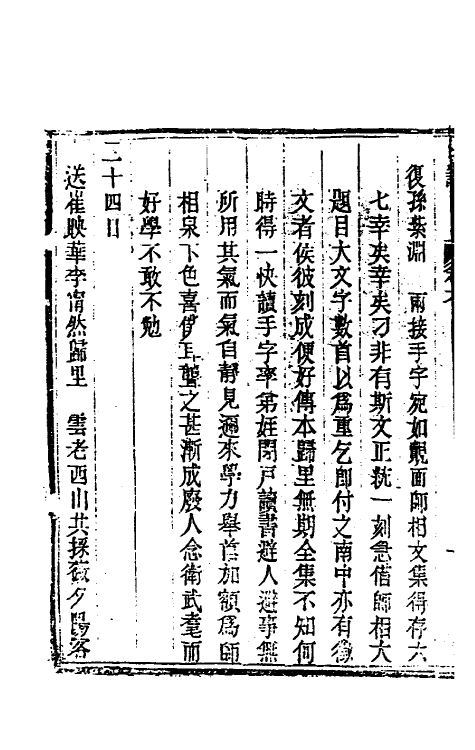 復孫紫淵　兩接手字宛如覿面師相文集得存六
七幸矣幸矣刁非有斯文正統一刻急借師相大
題目大文字數首以爲重乞卽付之南中亦有徵
文者俟彼刻成便好傳本歸里無期全集不知何
時得一快讀手字率第姪閉戸讀書避人避事無
所用其氣而氣自靜見邇來學力舉首加額爲師
相泉下色喜伊耳聾之甚漸成廢人念衛武耄而
好學不敢不勉
二十四日
送崔映華李甯然歸里　雲老西山共採薇夕陽客